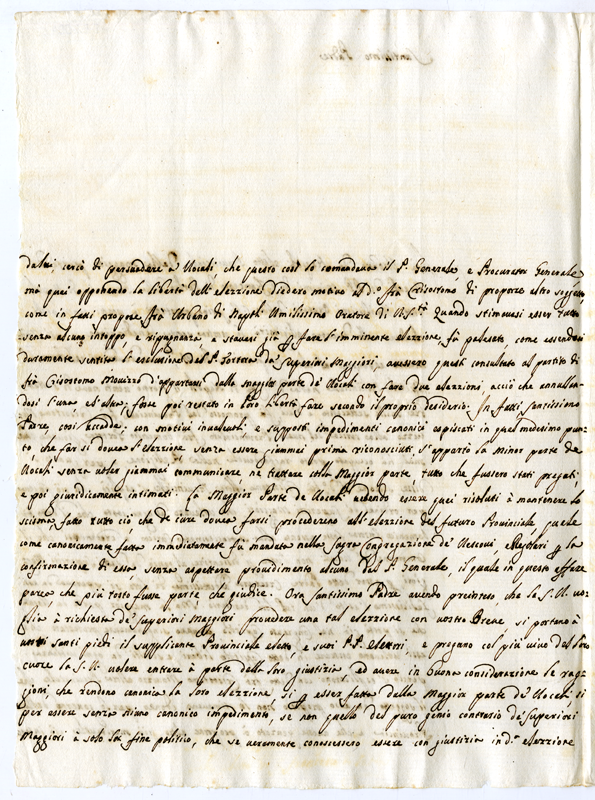 da lui, cercò di persuadere a Vocali, che questo così lo comandava il P. Generale, e Procurator Generale
mà quei opponendo la libertà dell'elezzione diedero motivo a d.o frà Crisostomo di proporre altro soggetto
come in fatti propose frà Urbano di Napoli Umilissimo Oratore di V. S.tà Quando stimavasi esser tutto
senza alcuno intoppo, e ripugnanza, e stavasi già p fare l'imminente elezzione, fù palesato, come essendosi
duramente sentita l'esclusione del P. da Superiori Maggiori, avessero questi consultato al partito di
frà Crisostomo d'appartarsi dalla maggior parte de Vocali con fare due elezzioni acciò che annullan-
dosi l'una, e l'altra, fosse poi restato in loro libertà fare secondo il proprio desiderio. In fatti Santissimo
Padre, così accadde; con motivi insussistenti, e supposti impedimenti canonici in quel medesimo pun-
to, che far si dovea l'elezzione senza essere giammai prima riconosciuti, s'appartò la minor parte de
Vocali senza voler giammai communicare ne trattare colla Maggior parte, tutto che fussero stati pregati,
e poi giuridicamente intimati. La Maggior Parte de Vocali vedendo essere quei risoluti à mantenere lo
scisma, fatto tutto ciò che de iure dovea farsi procederono all'elezzione del futuro Provinciale, quale
come canonicamente fatta immediatamente fù mandata nella Sagra Congregazione de' Vescovi, e Regolari p la
confirmazione di essa, senza aspettare provedimento alcuno dal P. Generale, il quale in questo affare
parea, che più tosto fusse parte che giudice. Ora Santissimo Padre avendo preinteso, che la S. V. vo-
glia à richiesta de' Superiori Maggiori provedere una tal elezzione con vostro Breve, si portano à
vostri Santi piedi il supplicante Provinciale eletto, e suoi PP. Elettori, e pregano col più vivo del loro
cuore la S. V. volere entrare à parte della loro giustizia, ed avere in buona considerazione le rag-
gioni, che rendono canonica la loro elezzione, si p esser fatta dalla Maggior parte de' Vocali, si
per essere senza niuno canonico impedimento, se non quello del puro genio contrario de' Superiori
Maggiori à solo lor fine politico, che se veramente conoscessero essere con giustizia in d.a elezzione